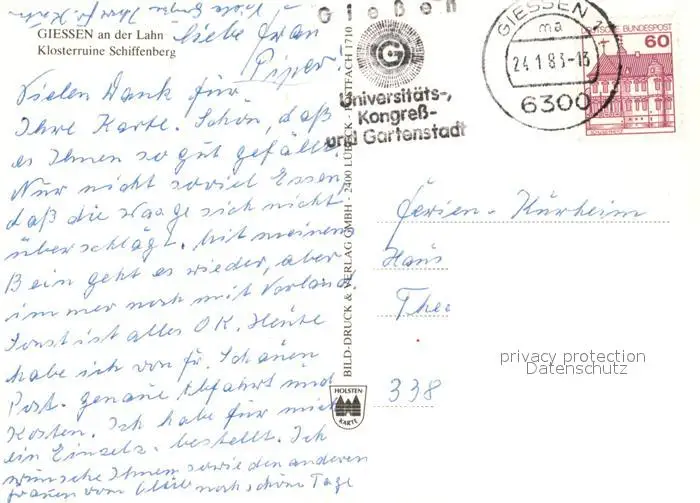 GIESSEN an der Lahn
Klosterruine Schiffenberg
Liebe Frau
Piper!
Vielen Dank für
Ihre Karte. Schön, daß
es Ihnen so gut gefällt.
Nur nicht soviel Essen,
daß die Waage sich nicht
überschlägt. Mit meinem
Bein geht es wieder, aber
immer noch mit Verband.
Sonst ist alles OK. Heute
habe ich von Fr.
Post. genaue Abfahrt und
Kosten. Ich habe für mich
ein Einzelz. bestellt. Ich
wünsche Ihnen sowie den anderen
Frauen vom noch schöne Tage
Gießen
Universitäts-,
Kongreß-
und Gartenstadt
GIESSEN 1
mä
24.1.83-13
6300
DEUTSCHE BUNDESPOST
60
BILD-DRUCK & VERLAG GMBH · 2400 LÜBECK · POSTFACH 1710
HOLSTEN
KARTE
Ferien-Kurheim
Haus
338
privacy protection
Datenschutz